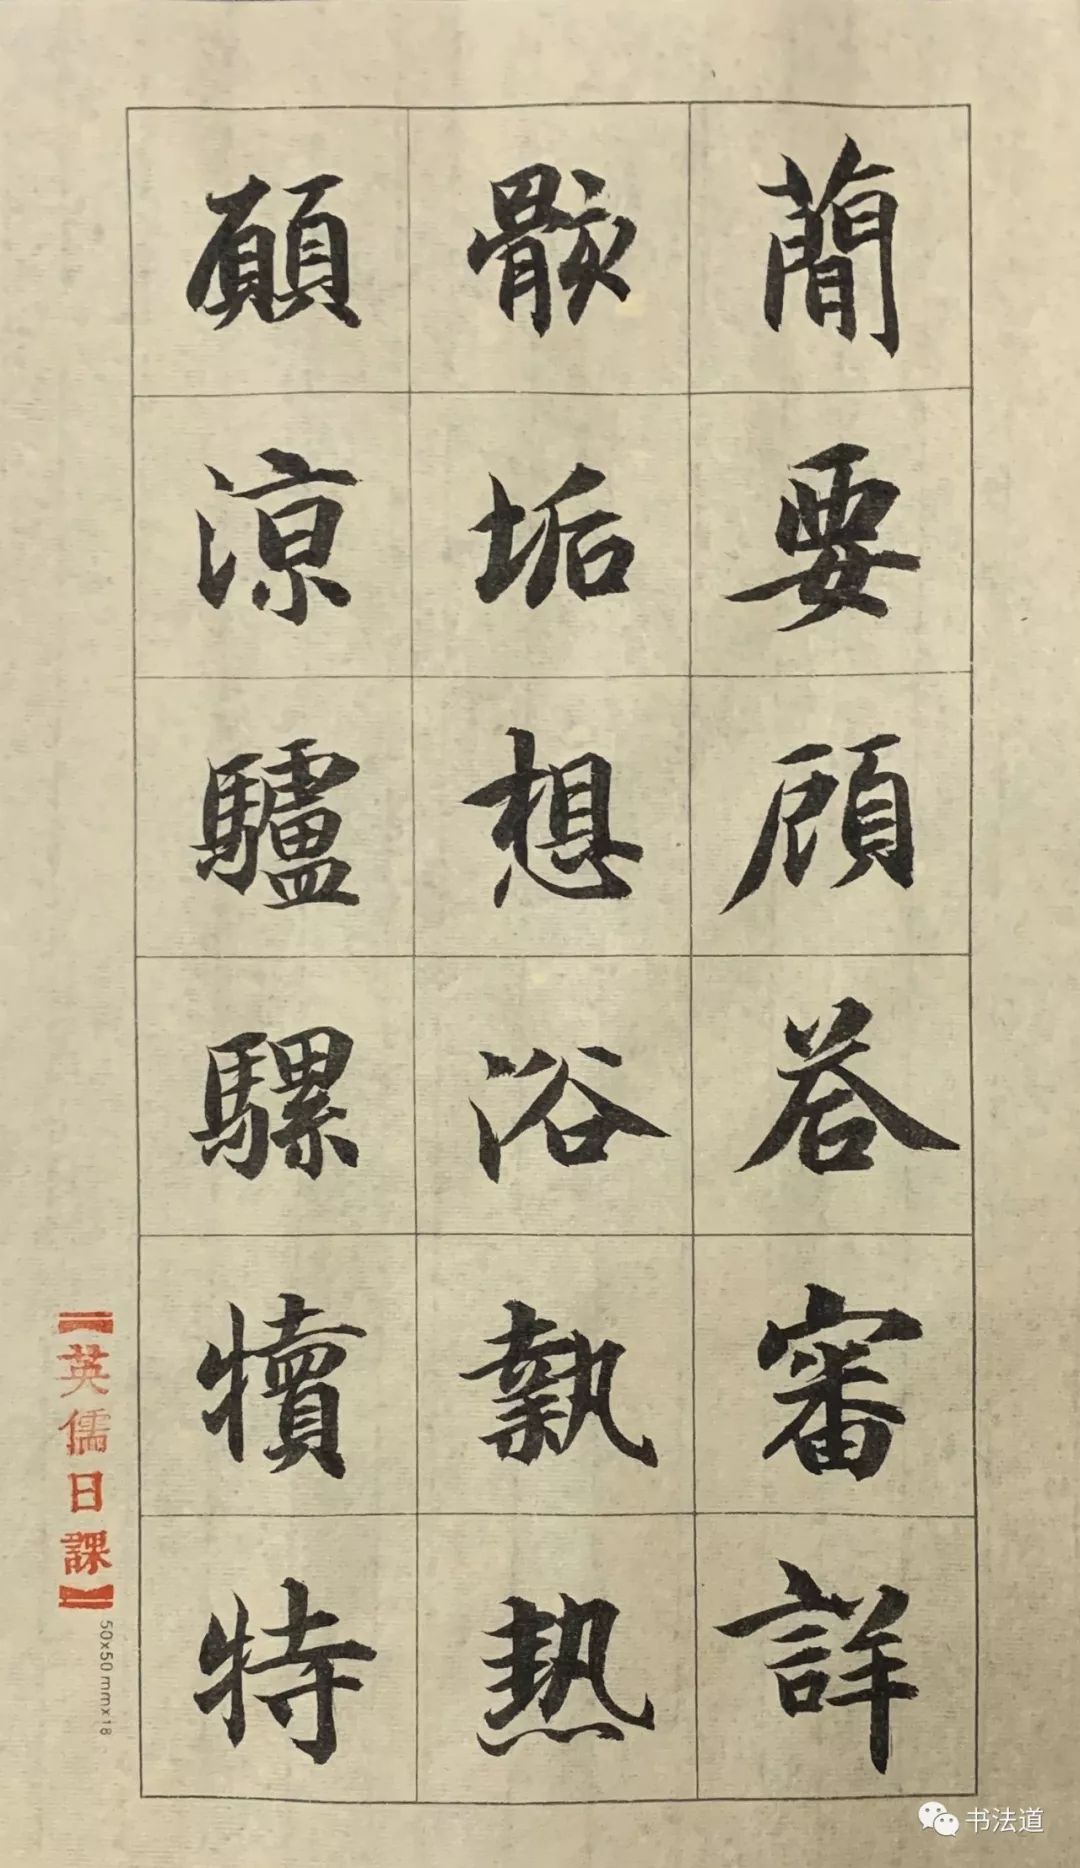 蕳要顧荅審詳
骸垢想浴執热
願涼驢騾犢特
【英儒日課】
50x50mmx18
书法道